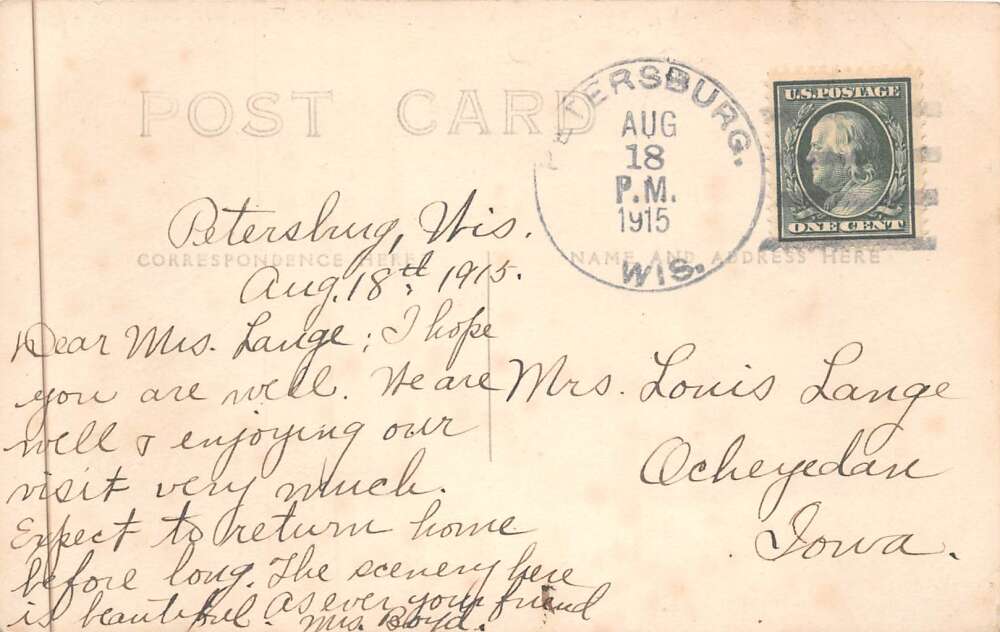 POST CARD
PETERSBURG.
AUG
18
P.M.
1915
WIS.
U.S. POSTAGE
ONE CENT
CORRESPONDENCE HERE
NAME AND ADDRESS HERE
Petersburg, Wis.
Aug. 18th, 1915.
Dear Mrs. Lange; I hope
you are well. We are
well & enjoying our
visit very much.
Expect to return home
before long. The scenery here
is beautiful. As ever your friend
Mrs. Boyd.
Mrs. Louis Lange
Ocheyedan
Iowa.